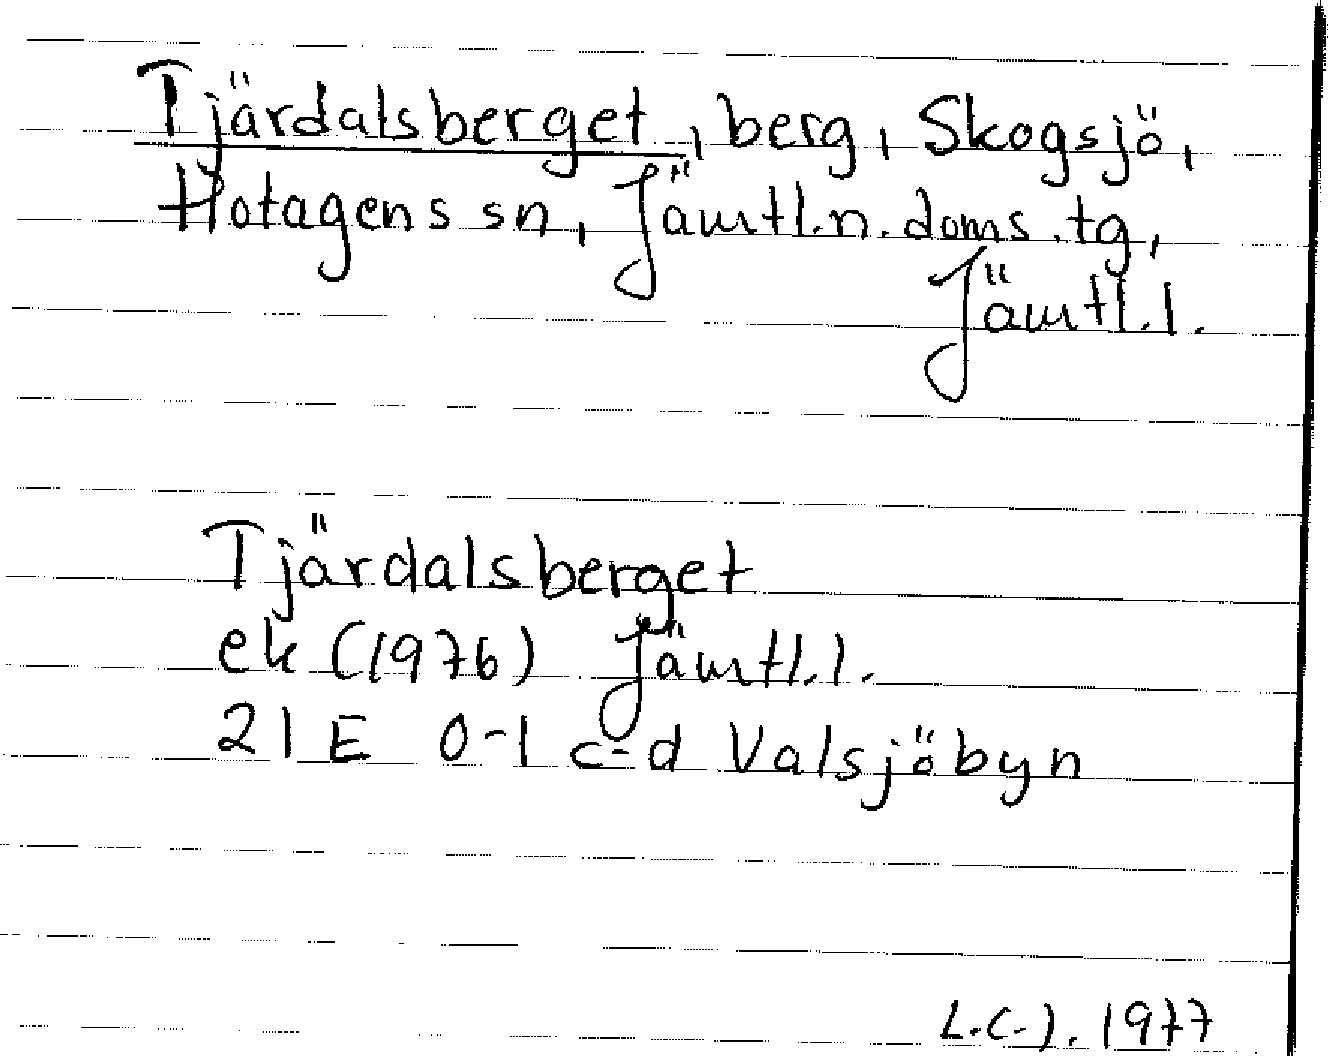 Tjärdalsberget, berg, Skogsjö,
Hotagens sn, Jämtl.n.doms.tg,
Jämtl.l.
Tjärdalsberget
ek (1976) Jämtl.l.
21E 0-1 c-d Valsjöbyn
L.C.J. 1977